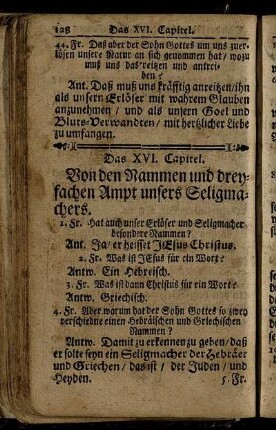 128 Das XVI. Capitel.
44. Fr. Daß aber der Sohn Gottes um uns zuer-
lösen unsere Natur an sich genommen hat/ wozu
muß uns das reitzen und antrei-
ben?
Ant. Daß muß uns kräfftig anreitzen/ ihn
als unsern Erlöser mit wahrem Glauben
anzunehmen/ und als unsern Goel und
Bluts-Verwandten/ mit hertzlicher Liebe
zu umfangen.
Das XVI. Capitel.
Von den Nammen und drey-
fachen Ampt unsers Seligma-
chers.
1. Fr. Hat auch unser Erlöser und Seligmacher
besondere Nammen?
Ant. Ja/ er heisset JEsus Christus.
2. Fr. Was ist JEsus für ein Wort?
Antw. Ein Hebreisch.
3. Fr. Was ist dann Christus für ein Wort?
Antw. Griechisch.
4. Fr. Aber warum hat der Sohn Gottes so zwey
verschiedne einen Hebräischen und Griechischen
Nammen?
Antw. Damit zu erkennen zu geben/ daß
er solte seyn ein Seligmacher der Hebräer
und Griechen/ das ist/ der Juden/ und
Heyden.
5. Fr.